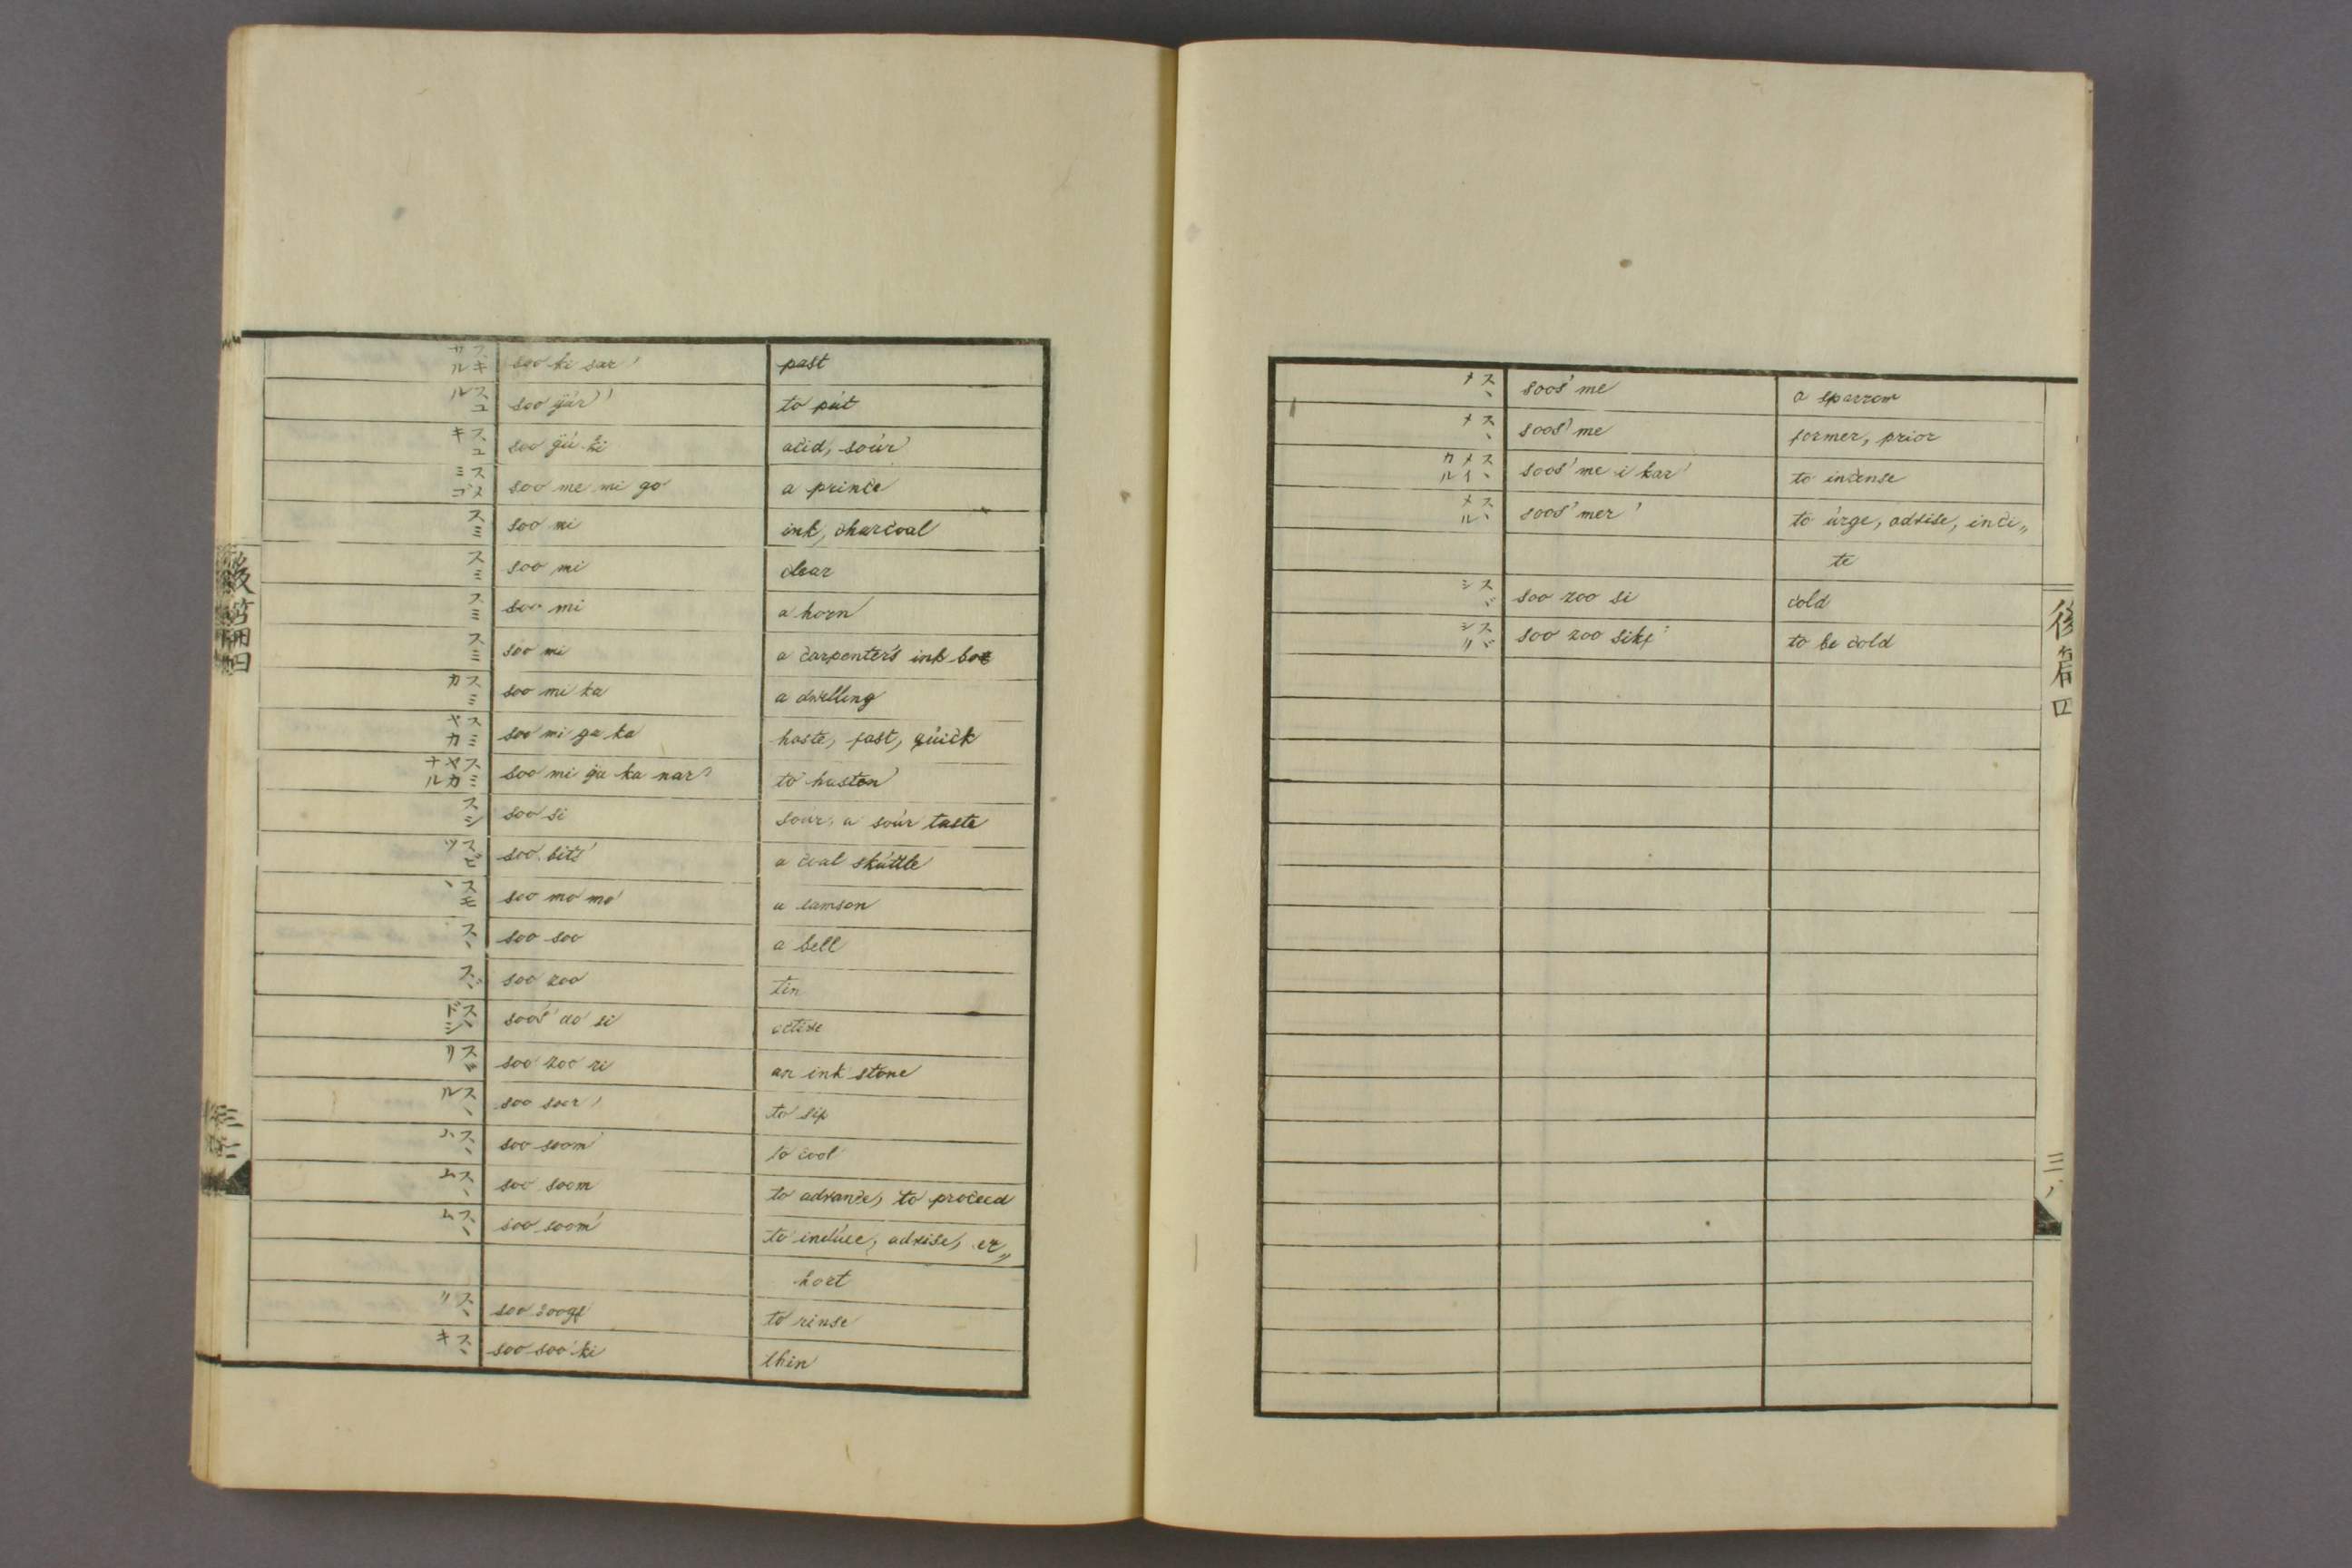 スキサル soo ki sar' past
スユル soo yür' to put
スユキ soo yü ki acid, sour
スメミゴ soo me mi go a prince
スミ soo mi ink, charcoal
スミ soo mi clear
スミ soo mi a horn
スミ soo mi a carpenter's ink box
スミカ soo mi ka a dwelling
スミヤカ soo mi ya ka haste, fast, quick
スミヤカナル soo mi ya ka nar' to hasten
スシ soo si sour, a sour taste
スビツ soo bits' a coal skuttle
スモヽ soo mo mo a samson
スヽ soo soo a bell
スヾ soo zoo tin
スヽドシ soos' do si active
スヾリ soo zoo ri an ink stone
スヽル soo soor' to sip
スヽム soo soom' to cool
スヽム soo soom to advance, to proceed
スヽム soo soom' to induce, advise, ex„
hort
スヽ to rinse
スヽキ soo soo ki thin
後篇四
スヽメ soos' me a sparrow
スヽメ soos' me former, prior
スヽメイカル soos' me i kar' to incense
スヽメル soos' mer' to urge, advise, inci„
te
スヾシ soo zoo si cold
スヾシ to be cold
後篇四